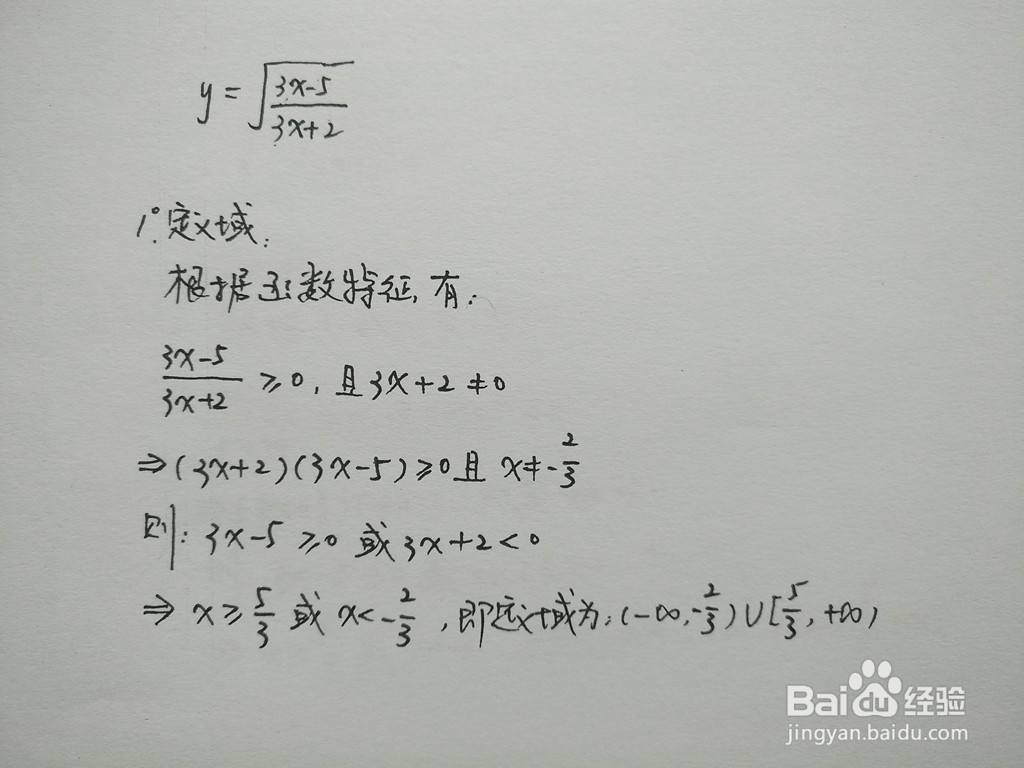 y = √((3x-5)/(3x+2))
1°. 定义域:
根据函数特征,有:
(3x-5)/(3x+2) ≥ 0, 且 3x+2 ≠ 0
⇒ (3x+2)(3x-5) ≥ 0 且 x ≠ -2/3
则: 3x-5 ≥ 0 或 3x+2 < 0
⇒ x ≥ 5/3 或 x < -2/3, 即定义域为: (-∞, -2/3) ∪ [5/3, +∞)
Bai du 经验
jingyan.baidu.com